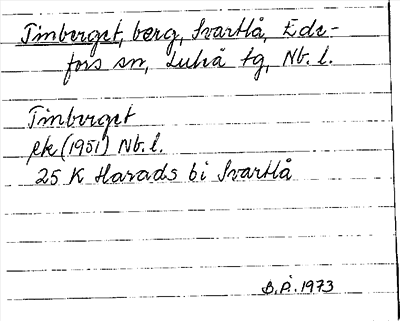 Timberget, berg, Svartlå, Ede-
fors sn, Luleå tg, Nb. l.
Timberget
ek (1951) Nb. l.
25 K Harads bi Svartlå
B.P. 1973